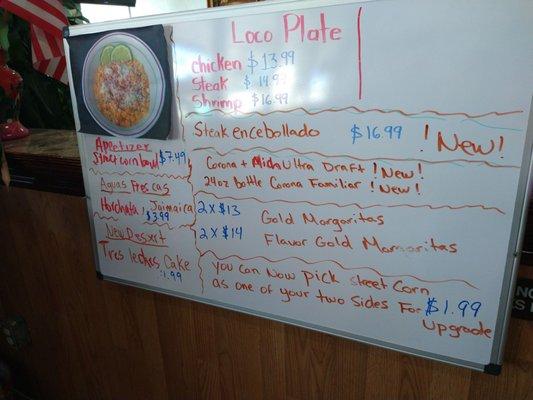 Loco Plate
chicken $13.99
Steak $14.99
Shrimp $16.99
Appetizer
$7.49
Aguas Frescas
Horchata Jaimaica
$3.99
New Dessert
Tres leches Cake
Steak encebollado $16.99 ! New!
Corona + Ultra Draft ! New!
24oz Bottle Corona Familiar ! New!
2 x $13 Gold Margaritas
2 x $14 Flavor Gold Margaritas
you can Now pick street Corn
as one of your two Sides For $1.99
Upgrade